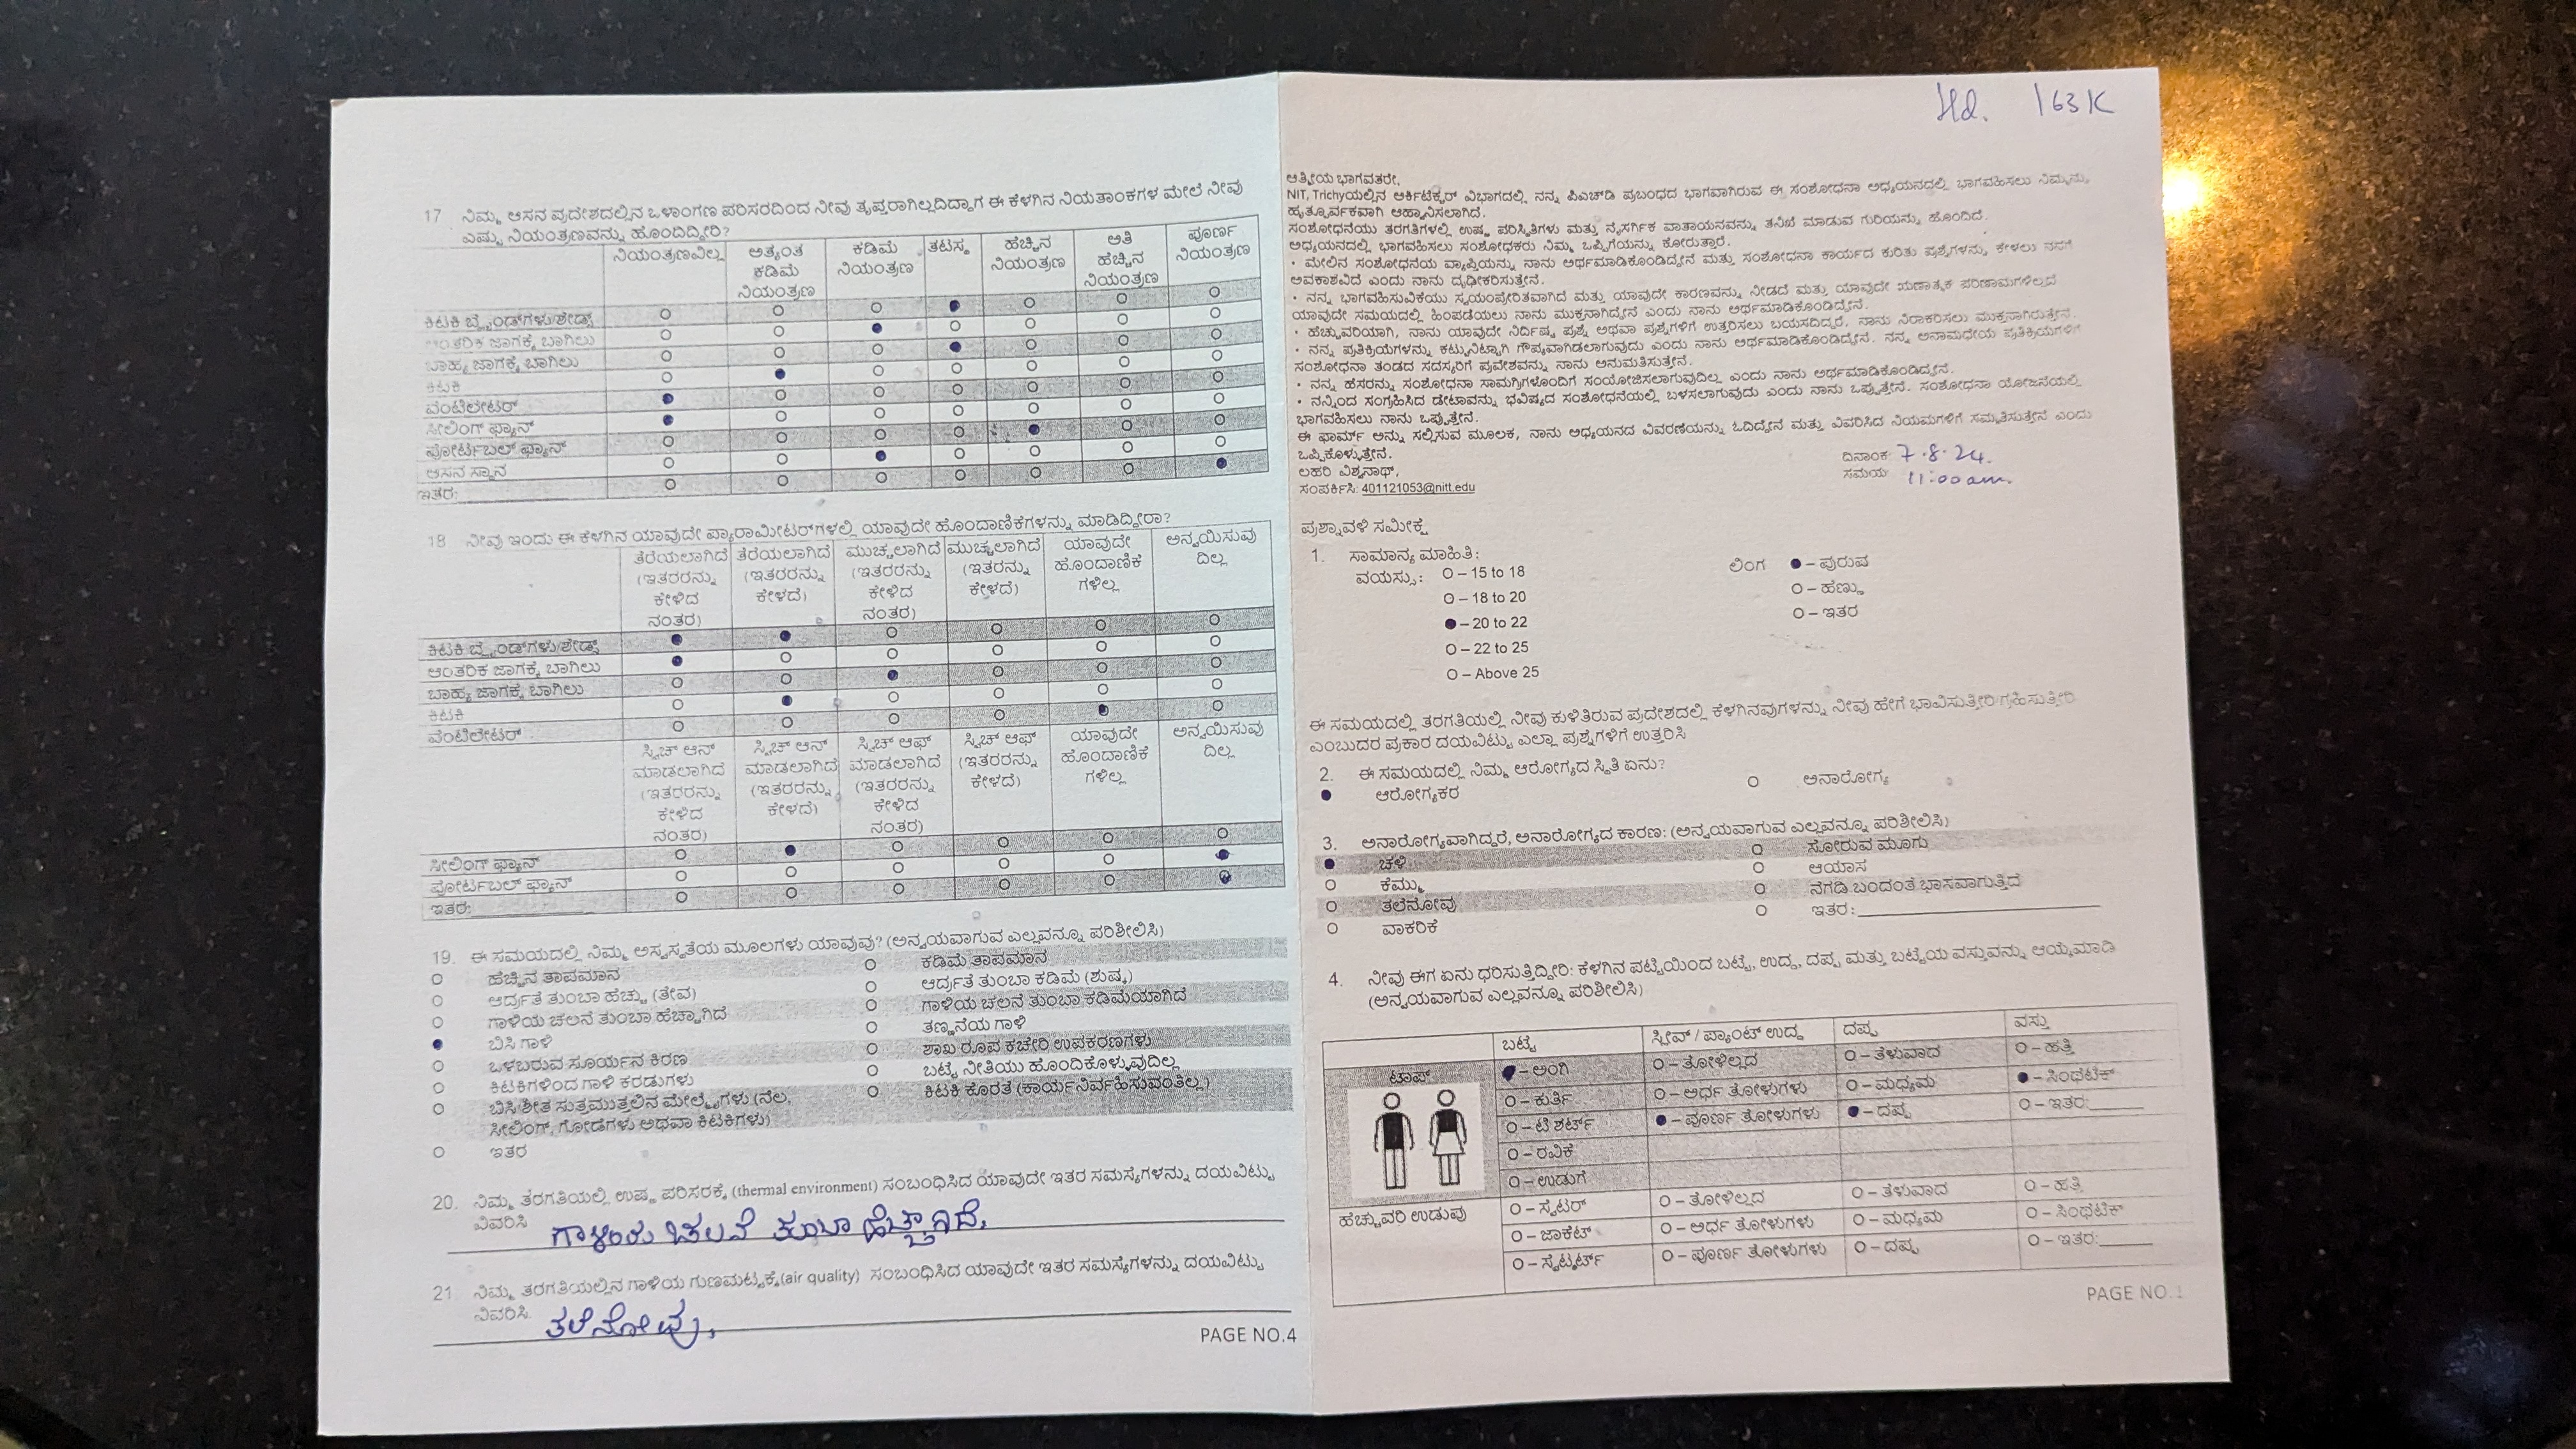 17 ನಿಮ್ಮ ಆಸನ ಪ್ರದೇಶದಲ್ಲಿನ ಒಳಾಂಗಣ ಪರಿಸರದಿಂದ ನೀವು ತೃಪ್ತರಾಗಿಲ್ಲದಿದ್ದಾಗ ಈ ಕೆಳಗಿನ ನಿಯತಾಂಕಗಳ ಮೇಲೆ ನೀವು
ಎಷ್ಟು ನಿಯಂತ್ರಣವನ್ನು ಹೊಂದಿದ್ದೀರಿ?
ನಿಯಂತ್ರಣವಿಲ್ಲ ಅತ್ಯಂತ ಕಡಿಮೆ ನಿಯಂತ್ರಣ ಕಡಿಮೆ ನಿಯಂತ್ರಣ ತಟಸ್ಥ ಹೆಚ್ಚಿನ ನಿಯಂತ್ರಣ ಅತಿ ಹೆಚ್ಚಿನ ನಿಯಂತ್ರಣ ಪೂರ್ಣ ನಿಯಂತ್ರಣ
ಕಿಟಕಿ ಬ್ಲೈಂಡ್‌ಗಳು/ಶೇಡ್ಸ್
ಆಂತರಿಕ ಜಾಗಕ್ಕೆ ಬಾಗಿಲು
ಬಾಹ್ಯ ಜಾಗಕ್ಕೆ ಬಾಗಿಲು
ಕಿಟಕಿ
ವೆಂಟಿಲೇಟರ್
ಸೀಲಿಂಗ್ ಫ್ಯಾನ್
ಪೋರ್ಟಬಲ್ ಫ್ಯಾನ್
ಆಸನ ಸ್ಥಾನ
ಇತರ:
18 ನೀವು ಇಂದು ಈ ಕೆಳಗಿನ ಯಾವುದೇ ಪ್ಯಾರಾಮೀಟರ್‌ಗಳಲ್ಲಿ ಯಾವುದೇ ಹೊಂದಾಣಿಕೆಗಳನ್ನು ಮಾಡಿದ್ದೀರಾ?
ತೆರೆಯಲಾಗಿದೆ (ಇತರರನ್ನು ಕೇಳಿದ ನಂತರ) ತೆರೆಯಲಾಗಿದೆ (ಇತರರನ್ನು ಕೇಳದೆ) ಮುಚ್ಚಲಾಗಿದೆ (ಇತರರನ್ನು ಕೇಳಿದ ನಂತರ) ಮುಚ್ಚಲಾಗಿದೆ (ಇತರರನ್ನು ಕೇಳದೆ) ಯಾವುದೇ ಹೊಂದಾಣಿಕೆ ಗಳಿಲ್ಲ ಅನ್ವಯಿಸುವು ದಿಲ್ಲ
ಕಿಟಕಿ ಬ್ಲೈಂಡ್‌ಗಳು/ಶೇಡ್ಸ್
ಆಂತರಿಕ ಜಾಗಕ್ಕೆ ಬಾಗಿಲು
ಬಾಹ್ಯ ಜಾಗಕ್ಕೆ ಬಾಗಿಲು
ಕಿಟಕಿ
ವೆಂಟಿಲೇಟರ್
ಸ್ವಿಚ್ ಆನ್ ಮಾಡಲಾಗಿದೆ (ಇತರರನ್ನು ಕೇಳಿದ ನಂತರ) ಸ್ವಿಚ್ ಆನ್ ಮಾಡಲಾಗಿದೆ (ಇತರರನ್ನು ಕೇಳದೆ) ಸ್ವಿಚ್ ಆಫ್ ಮಾಡಲಾಗಿದೆ (ಇತರರನ್ನು ಕೇಳಿದ ನಂತರ) ಸ್ವಿಚ್ ಆಫ್ (ಇತರರನ್ನು ಕೇಳದೆ) ಯಾವುದೇ ಹೊಂದಾಣಿಕೆ ಗಳಿಲ್ಲ ಅನ್ವಯಿಸುವು ದಿಲ್ಲ
ಸೀಲಿಂಗ್ ಫ್ಯಾನ್
ಪೋರ್ಟಬಲ್ ಫ್ಯಾನ್
ಇತರ:
19. ಈ ಸಮಯದಲ್ಲಿ ನಿಮ್ಮ ಅಸ್ವಸ್ಥತೆಯ ಮೂಲಗಳು ಯಾವುವು? (ಅನ್ವಯವಾಗುವ ಎಲ್ಲವನ್ನೂ ಪರಿಶೀಲಿಸಿ)
ಹೆಚ್ಚಿನ ತಾಪಮಾನ ಕಡಿಮೆ ತಾಪಮಾನ
ಆರ್ದ್ರತೆ ತುಂಬಾ ಹೆಚ್ಚು (ತೇವ) ಆರ್ದ್ರತೆ ತುಂಬಾ ಕಡಿಮೆ (ಶುಷ್ಕ)
ಗಾಳಿಯ ಚಲನೆ ತುಂಬಾ ಹೆಚ್ಚಾಗಿದೆ ಗಾಳಿಯ ಚಲನೆ ತುಂಬಾ ಕಡಿಮೆಯಾಗಿದೆ
ಬಿಸಿ ಗಾಳಿ ತಣ್ಣನೆಯ ಗಾಳಿ
ಒಳಬರುವ ಸೂರ್ಯನ ಕಿರಣ ಶಾಖ ರೂಪ ಕಚೇರಿ ಉಪಕರಣಗಳು
ಕಿಟಕಿಗಳಿಂದ ಗಾಳಿ ಕರಡುಗಳು ಬಟ್ಟೆ ನೀತಿಯು ಹೊಂದಿಕೊಳ್ಳುವುದಿಲ್ಲ
ಬಿಸಿ/ಶೀತ ಸುತ್ತಮುತ್ತಲಿನ ಮೇಲ್ಮೈಗಳು (ನೆಲ, ಕಿಟಕಿ ಕೊರತೆ (ಕಾರ್ಯನಿರ್ವಹಿಸುವಂತಿಲ್ಲ)
ಸೀಲಿಂಗ್, ಗೋಡೆಗಳು ಅಥವಾ ಕಿಟಕಿಗಳು)
ಇತರ
20. ನಿಮ್ಮ ತರಗತಿಯಲ್ಲಿ ಉಷ್ಣ ಪರಿಸರಕ್ಕೆ (thermal environment) ಸಂಬಂಧಿಸಿದ ಯಾವುದೇ ಇತರ ಸಮಸ್ಯೆಗಳನ್ನು ದಯವಿಟ್ಟು
ವಿವರಿಸಿ ಗಾಳಿಯ ಚಲನೆ ತುಂಬಾ ಹೆಚ್ಚಾಗಿದೆ.
21. ನಿಮ್ಮ ತರಗತಿಯಲ್ಲಿನ ಗಾಳಿಯ ಗುಣಮಟ್ಟಕ್ಕೆ(air quality) ಸಂಬಂಧಿಸಿದ ಯಾವುದೇ ಇತರ ಸಮಸ್ಯೆಗಳನ್ನು ದಯವಿಟ್ಟು
ವಿವರಿಸಿ ತಲೆನೋವು.
PAGE NO.4
163K
ಆತ್ಮೀಯ ಭಾಗವತರೇ,
NIT, Trichyಯಲ್ಲಿನ ಆರ್ಕಿಟೆಕ್ಚರ್ ವಿಭಾಗದಲ್ಲಿ ನನ್ನ ಪಿಎಚ್‌ಡಿ ಪ್ರಬಂಧದ ಭಾಗವಾಗಿರುವ ಈ ಸಂಶೋಧನಾ ಅಧ್ಯಯನದಲ್ಲಿ ಭಾಗವಹಿಸಲು ನಿಮ್ಮನ್ನು
ಹೃತ್ಪೂರ್ವಕವಾಗಿ ಆಹ್ವಾನಿಸಲಾಗಿದೆ.
ಸಂಶೋಧನೆಯು ತರಗತಿಗಳಲ್ಲಿ ಉಷ್ಣ ಪರಿಸ್ಥಿತಿಗಳು ಮತ್ತು ನೈಸರ್ಗಿಕ ವಾತಾಯನವನ್ನು ತನಿಖೆ ಮಾಡುವ ಗುರಿಯನ್ನು ಹೊಂದಿದೆ.
ಅಧ್ಯಯನದಲ್ಲಿ ಭಾಗವಹಿಸಲು ಸಂಶೋಧಕರು ನಿಮ್ಮ ಒಪ್ಪಿಗೆಯನ್ನು ಕೋರುತ್ತಾರೆ.
• ಮೇಲಿನ ಸಂಶೋಧನೆಯ ವ್ಯಾಪ್ತಿಯನ್ನು ನಾನು ಅರ್ಥಮಾಡಿಕೊಂಡಿದ್ದೇನೆ ಮತ್ತು ಸಂಶೋಧನಾ ಕಾರ್ಯದ ಕುರಿತು ಪ್ರಶ್ನೆಗಳನ್ನು ಕೇಳಲು ನನಗೆ
ಅವಕಾಶವಿದೆ ಎಂದು ನಾನು ದೃಢೀಕರಿಸುತ್ತೇನೆ.
• ನನ್ನ ಭಾಗವಹಿಸುವಿಕೆಯು ಸ್ವಯಂಪ್ರೇರಿತವಾಗಿದೆ ಮತ್ತು ಯಾವುದೇ ಕಾರಣವನ್ನು ನೀಡದೆ ಮತ್ತು ಯಾವುದೇ ಋಣಾತ್ಮಕ ಪರಿಣಾಮಗಳಿಲ್ಲದೆ
ಯಾವುದೇ ಸಮಯದಲ್ಲಿ ಹಿಂಪಡೆಯಲು ನಾನು ಮುಕ್ತನಾಗಿದ್ದೇನೆ ಎಂದು ನಾನು ಅರ್ಥಮಾಡಿಕೊಂಡಿದ್ದೇನೆ.
• ಹೆಚ್ಚುವರಿಯಾಗಿ, ನಾನು ಯಾವುದೇ ನಿರ್ದಿಷ್ಟ ಪ್ರಶ್ನೆ ಅಥವಾ ಪ್ರಶ್ನೆಗಳಿಗೆ ಉತ್ತರಿಸಲು ಬಯಸದಿದ್ದರೆ, ನಾನು ನಿರಾಕರಿಸಲು ಮುಕ್ತನಾಗಿರುತ್ತೇನೆ.
• ನನ್ನ ಪ್ರತಿಕ್ರಿಯೆಗಳನ್ನು ಕಟ್ಟುನಿಟ್ಟಾಗಿ ಗೌಪ್ಯವಾಗಿಡಲಾಗುವುದು ಎಂದು ನಾನು ಅರ್ಥಮಾಡಿಕೊಂಡಿದ್ದೇನೆ. ನನ್ನ ಅನಾಮಧೇಯ ಪ್ರತಿಕ್ರಿಯೆಗಳಿಗೆ
ಸಂಶೋಧನಾ ತಂಡದ ಸದಸ್ಯರಿಗೆ ಪ್ರವೇಶವನ್ನು ನಾನು ಅನುಮತಿಸುತ್ತೇನೆ.
• ನನ್ನ ಹೆಸರನ್ನು ಸಂಶೋಧನಾ ಸಾಮಗ್ರಿಗಳೊಂದಿಗೆ ಸಂಯೋಜಿಸಲಾಗುವುದಿಲ್ಲ ಎಂದು ನಾನು ಅರ್ಥಮಾಡಿಕೊಂಡಿದ್ದೇನೆ.
• ನನ್ನಿಂದ ಸಂಗ್ರಹಿಸಿದ ಡೇಟಾವನ್ನು ಭವಿಷ್ಯದ ಸಂಶೋಧನೆಯಲ್ಲಿ ಬಳಸಲಾಗುವುದು ಎಂದು ನಾನು ಒಪ್ಪುತ್ತೇನೆ. ಸಂಶೋಧನಾ ಯೋಜನೆಯಲ್ಲಿ
ಭಾಗವಹಿಸಲು ನಾನು ಒಪ್ಪುತ್ತೇನೆ.
ಈ ಫಾರ್ಮ್ ಅನ್ನು ಸಲ್ಲಿಸುವ ಮೂಲಕ, ನಾನು ಅಧ್ಯಯನದ ವಿವರಣೆಯನ್ನು ಓದಿದ್ದೇನೆ ಮತ್ತು ವಿವರಿಸಿದ ನಿಯಮಗಳಿಗೆ ಸಮ್ಮತಿಸುತ್ತೇನೆ ಎಂದು
ಒಪ್ಪಿಕೊಳ್ಳುತ್ತೇನೆ. ದಿನಾಂಕ: 7.8.24.
ಲಹರಿ ವಿಶ್ವನಾಥ್, ಸಮಯ: 11:00am.
ಸಂಪರ್ಕಿಸಿ: 401121053@nitt.edu
ಪ್ರಶ್ನಾವಳಿ ಸಮೀಕ್ಷೆ
1. ಸಾಮಾನ್ಯ ಮಾಹಿತಿ:
ವಯಸ್ಸು: O – 15 to 18 ಲಿಂಗ ● – ಪುರುಷ
O – 18 to 20 O – ಹೆಣ್ಣು
● – 20 to 22 O – ಇತರ
O – 22 to 25
O – Above 25
ಈ ಸಮಯದಲ್ಲಿ ತರಗತಿಯಲ್ಲಿ ನೀವು ಕುಳಿತಿರುವ ಪ್ರದೇಶದಲ್ಲಿ ಕೆಳಗಿನವುಗಳನ್ನು ನೀವು ಹೇಗೆ ಭಾವಿಸುತ್ತೀರಿ/ಗ್ರಹಿಸುತ್ತೀರಿ
ಎಂಬುದರ ಪ್ರಕಾರ ದಯವಿಟ್ಟು ಎಲ್ಲಾ ಪ್ರಶ್ನೆಗಳಿಗೆ ಉತ್ತರಿಸಿ
2. ಈ ಸಮಯದಲ್ಲಿ ನಿಮ್ಮ ಆರೋಗ್ಯದ ಸ್ಥಿತಿ ಏನು?
● ಆರೋಗ್ಯಕರ O ಅನಾರೋಗ್ಯ
3. ಅನಾರೋಗ್ಯವಾಗಿದ್ದರೆ, ಅನಾರೋಗ್ಯದ ಕಾರಣ: (ಅನ್ವಯವಾಗುವ ಎಲ್ಲವನ್ನೂ ಪರಿಶೀಲಿಸಿ)
● ಚಳಿ O ಸೋರುವ ಮೂಗು
O ಕೆಮ್ಮು O ಆಯಾಸ
O ತಲೆನೋವು O ನೆಗಡಿ ಬಂದಂತೆ ಭಾಸವಾಗುತ್ತಿದೆ
O ವಾಕರಿಕೆ O ಇತರ:
4. ನೀವು ಈಗ ಏನು ಧರಿಸುತ್ತಿದ್ದೀರಿ: ಕೆಳಗಿನ ಪಟ್ಟಿಯಿಂದ ಬಟ್ಟೆ, ಉದ್ದ, ದಪ್ಪ ಮತ್ತು ಬಟ್ಟೆಯ ವಸ್ತುವನ್ನು ಆಯ್ಕೆಮಾಡಿ
(ಅನ್ವಯವಾಗುವ ಎಲ್ಲವನ್ನೂ ಪರಿಶೀಲಿಸಿ)
ಬಟ್ಟೆ ಸ್ಲೀವ್ / ಪ್ಯಾಂಟ್ ಉದ್ದ ದಪ್ಪ ವಸ್ತು
ಟಾಪ್ ● – ಅಂಗಿ O – ತೋಳಿಲ್ಲದ O – ತೆಳುವಾದ O – ಹತ್ತಿ
O – ಕುರ್ತಿ O – ಅರ್ಧ ತೋಳುಗಳು O – ಮಧ್ಯಮ ● – ಸಿಂಥಟಿಕ್
O – ಟಿ ಶರ್ಟ್ ● – ಪೂರ್ಣ ತೋಳುಗಳು ● – ದಪ್ಪ O – ಇತರ:
O – ರವಿಕೆ
O – ಉಡುಗೆ
ಹೆಚ್ಚುವರಿ ಉಡುಪು O – ಸ್ವೆಟರ್ O – ತೋಳಿಲ್ಲದ O – ತೆಳುವಾದ O – ಹತ್ತಿ
O – ಜಾಕೆಟ್ O – ಅರ್ಧ ತೋಳುಗಳು O – ಮಧ್ಯಮ O – ಸಿಂಥಟಿಕ್
O – ಸ್ವೆಟ್ಶರ್ಟ್ O – ಪೂರ್ಣ ತೋಳುಗಳು O – ದಪ್ಪ O – ಇತರ:
PAGE NO.1